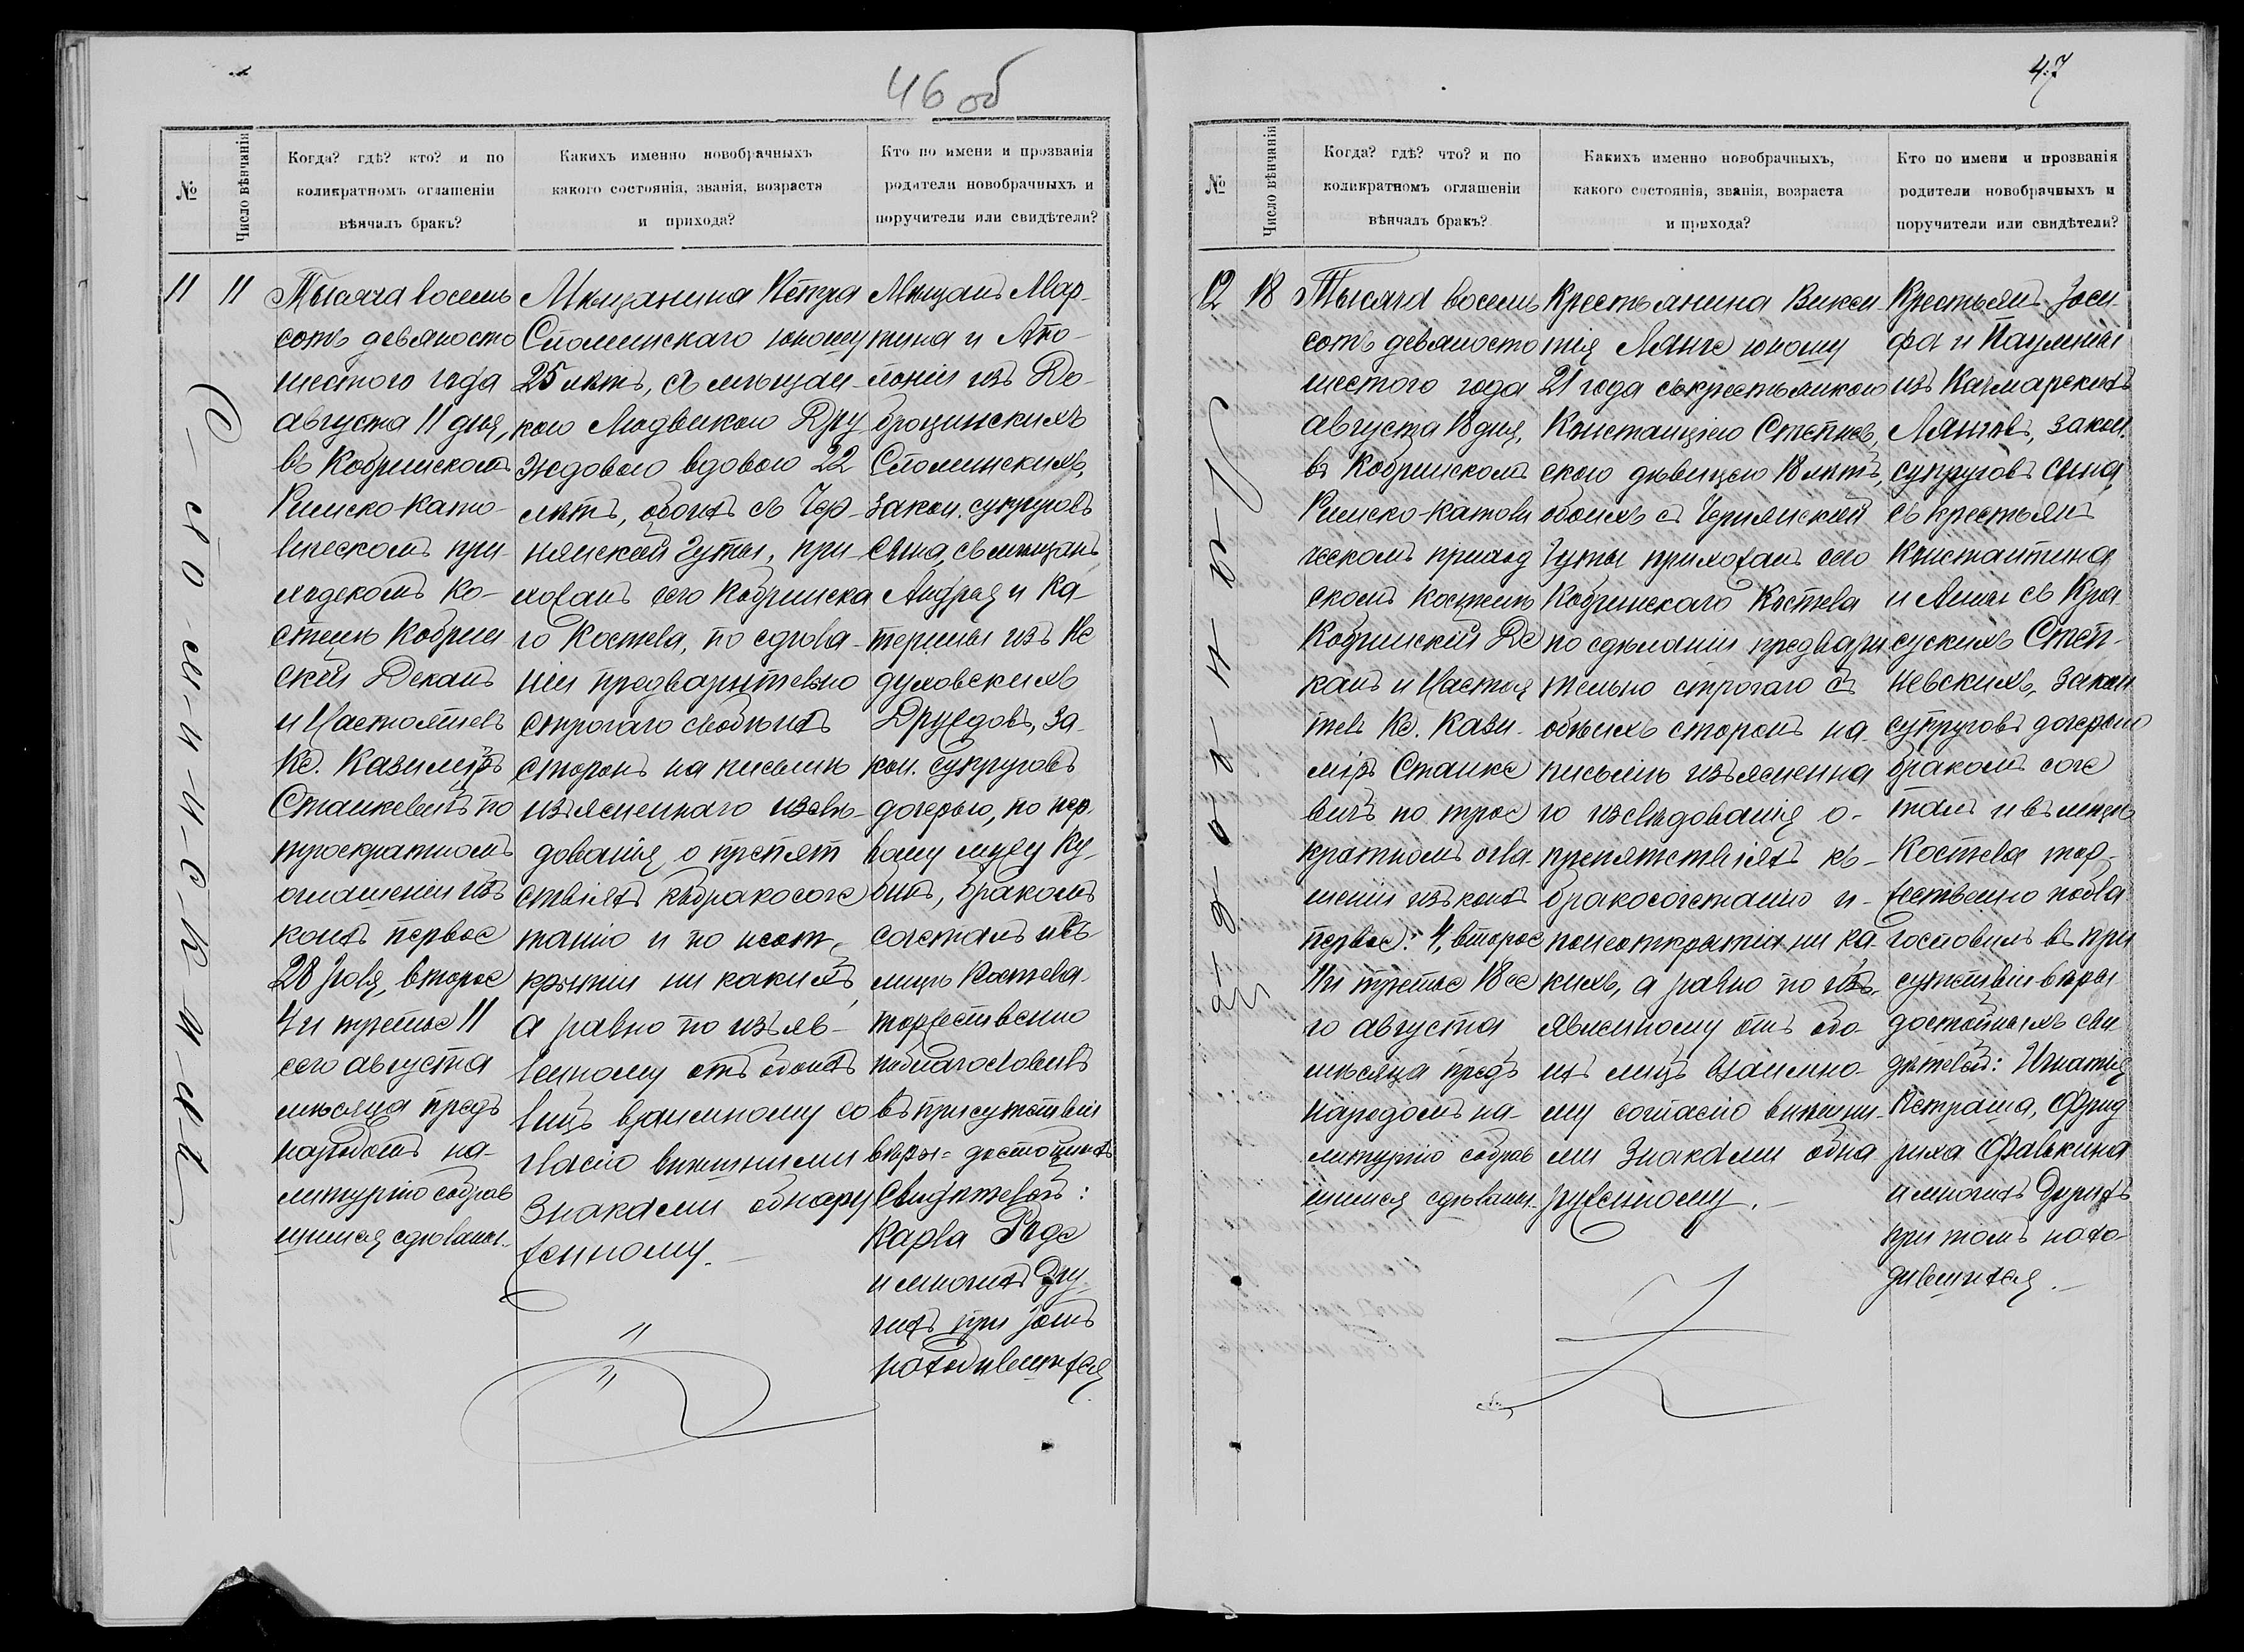 46 об
№
Число вѣнчанія
Когда? гдѣ? кто? и по
коликратномъ оглашеніи
вѣнчалъ бракъ?
Какихъ именно новобрачныхъ
какого состоянія, званія, возраста
и прихода?
Кто по имени и прозванія
родители новобрачныхъ и
поручители или свидѣтели?
11
11
Тысяча восемь
сотъ девяносто
шестого года
августа 11 дня,
въ Кобринскомъ
Римско-Като-
лическомъ при-
ходскомъ Ко-
стелѣ Кобрин
скій Деканъ
и Настоятель
Кс. Казиміръ
Станкевичъ по
троекратномъ
оглашеніи изъ
коихъ первое
28 Іюля, второе
4 и третіе 11
сего августа
мѣсяца предъ
народомъ на-
литургію собрав
шимся сдѣланы.
Мѣщанина Петра
Сломинскаго юношу
25 лѣтъ, съ мѣщан-
кою Людвикою Дру
ждовою вдовою 22
лѣтъ, обоихъ съ Чер-
нянской Гуты, при-
хожанъ сего Кобринска
го Костела, по сдѣла-
ніи предварительно
строгаго съ обѣихъ
сторонъ на письмѣ
изъясненнаго изслѣ-
дованія о препят
ствіяхъ къ бракосоче
танію и по неот-
крытіи ни какихъ,
а равно по изъяв-
ленному отъ обоихъ
лицъ взаимному со
гласію внѣшними
знаками обнару
женному.
Мѣщанъ Мар-
тина и Апо-
лоніи изъ До-
брощинскихъ
Сломинскихъ,
закон. супруговъ
сына, съ мѣщанъ
Андрея и Ка-
терины изъ Не
дуловскихъ
Друждовъ, за-
кон. супруговъ
дочерью, по пер-
вому мужу Ку-
бикъ, бракомъ
сочеталъ и въ
лицѣ Костела
торжественно
поблагословилъ
въ присутствіи
вѣры-достойныхъ
Свидѣтелей:
Карла Роде
и многихъ Дру
гихъ при томъ
находившихся
С-ло-ми-н-с-к-и-хъ
47
№
Число вѣнчанія
Когда? гдѣ? что? и по
коликратномъ оглашеніи
вѣнчалъ бракъ?
Какихъ именно новобрачныхъ,
какого состоянія, званія, возраста
и прихода?
Кто по имени и прозванія
родители новобрачныхъ и
поручители или свидѣтели?
12
18
Тысяча восемь
сотъ девяносто
шестого года
августа 18 дня,
въ Кобринскомъ
Римско-Католи
ческомъ приход
скомъ Костелѣ
Кобринскій Де
канъ и Настоя
тель Кс. Кази-
міръ Станке
вичъ по трое
кратномъ огла-
шеніи изъ коихъ
первое: 4, второе
11 и третіе 18 се
го августа
мѣсяца предъ
народомъ на-
литургію собрав
шимся сдѣланы.
Крестьянина Викен
тія Лянге юношу
21 года съ крестьянкою
Констанціею Степнев-
скою дѣвицею 18 лѣтъ,
обоихъ съ Чернянской
Гуты прихожанъ сего
Кобринскаго Костела
по сдѣланіи предвари
тельно строгаго съ
обѣихъ сторонъ на-
письмѣ изъясненна
го изслѣдованія о-
препятствіяхъ къ-
бракосочетанію и-
понеоткрытіи ни ка-
кихъ, а равно по изъ-
явленному отъ обо-
ихъ лицъ взаимно-
му согласію внѣшни-
ми знаками обна
руженному.
Крестьянъ Іоси
фа и Паулины
изъ Качмарскихъ
Лянговъ, закон.
супруговъ сына,
съ крестьянъ
Константина
и Анны съ Кра-
сускихъ Степ-
невскихъ, закон
супруговъ дочерью
бракомъ соче
талъ и въ лицѣ
Костела тор-
жественно побла
гословилъ въ при
сутствіи вѣры
достойныхъ сви
дѣтелей: Игнатія
Петраша, Фрид
риха Фалькина
и многихъ Другихъ
при томъ нахо-
дившихся.